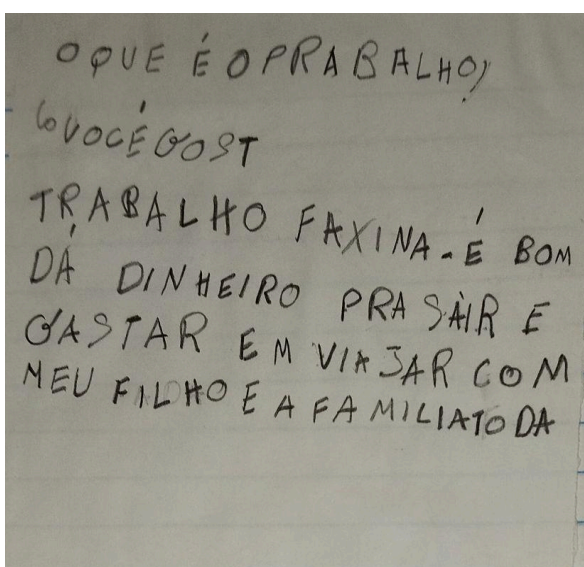 O QUE É O PRABALHO)
VOCÊ GOST
TRABALHO FAXINA. É BOM
DÁ DINHEIRO PRA SAIR E
GASTAR EM VIAJAR COM
MEU FILHO E A FAMILIA TODA